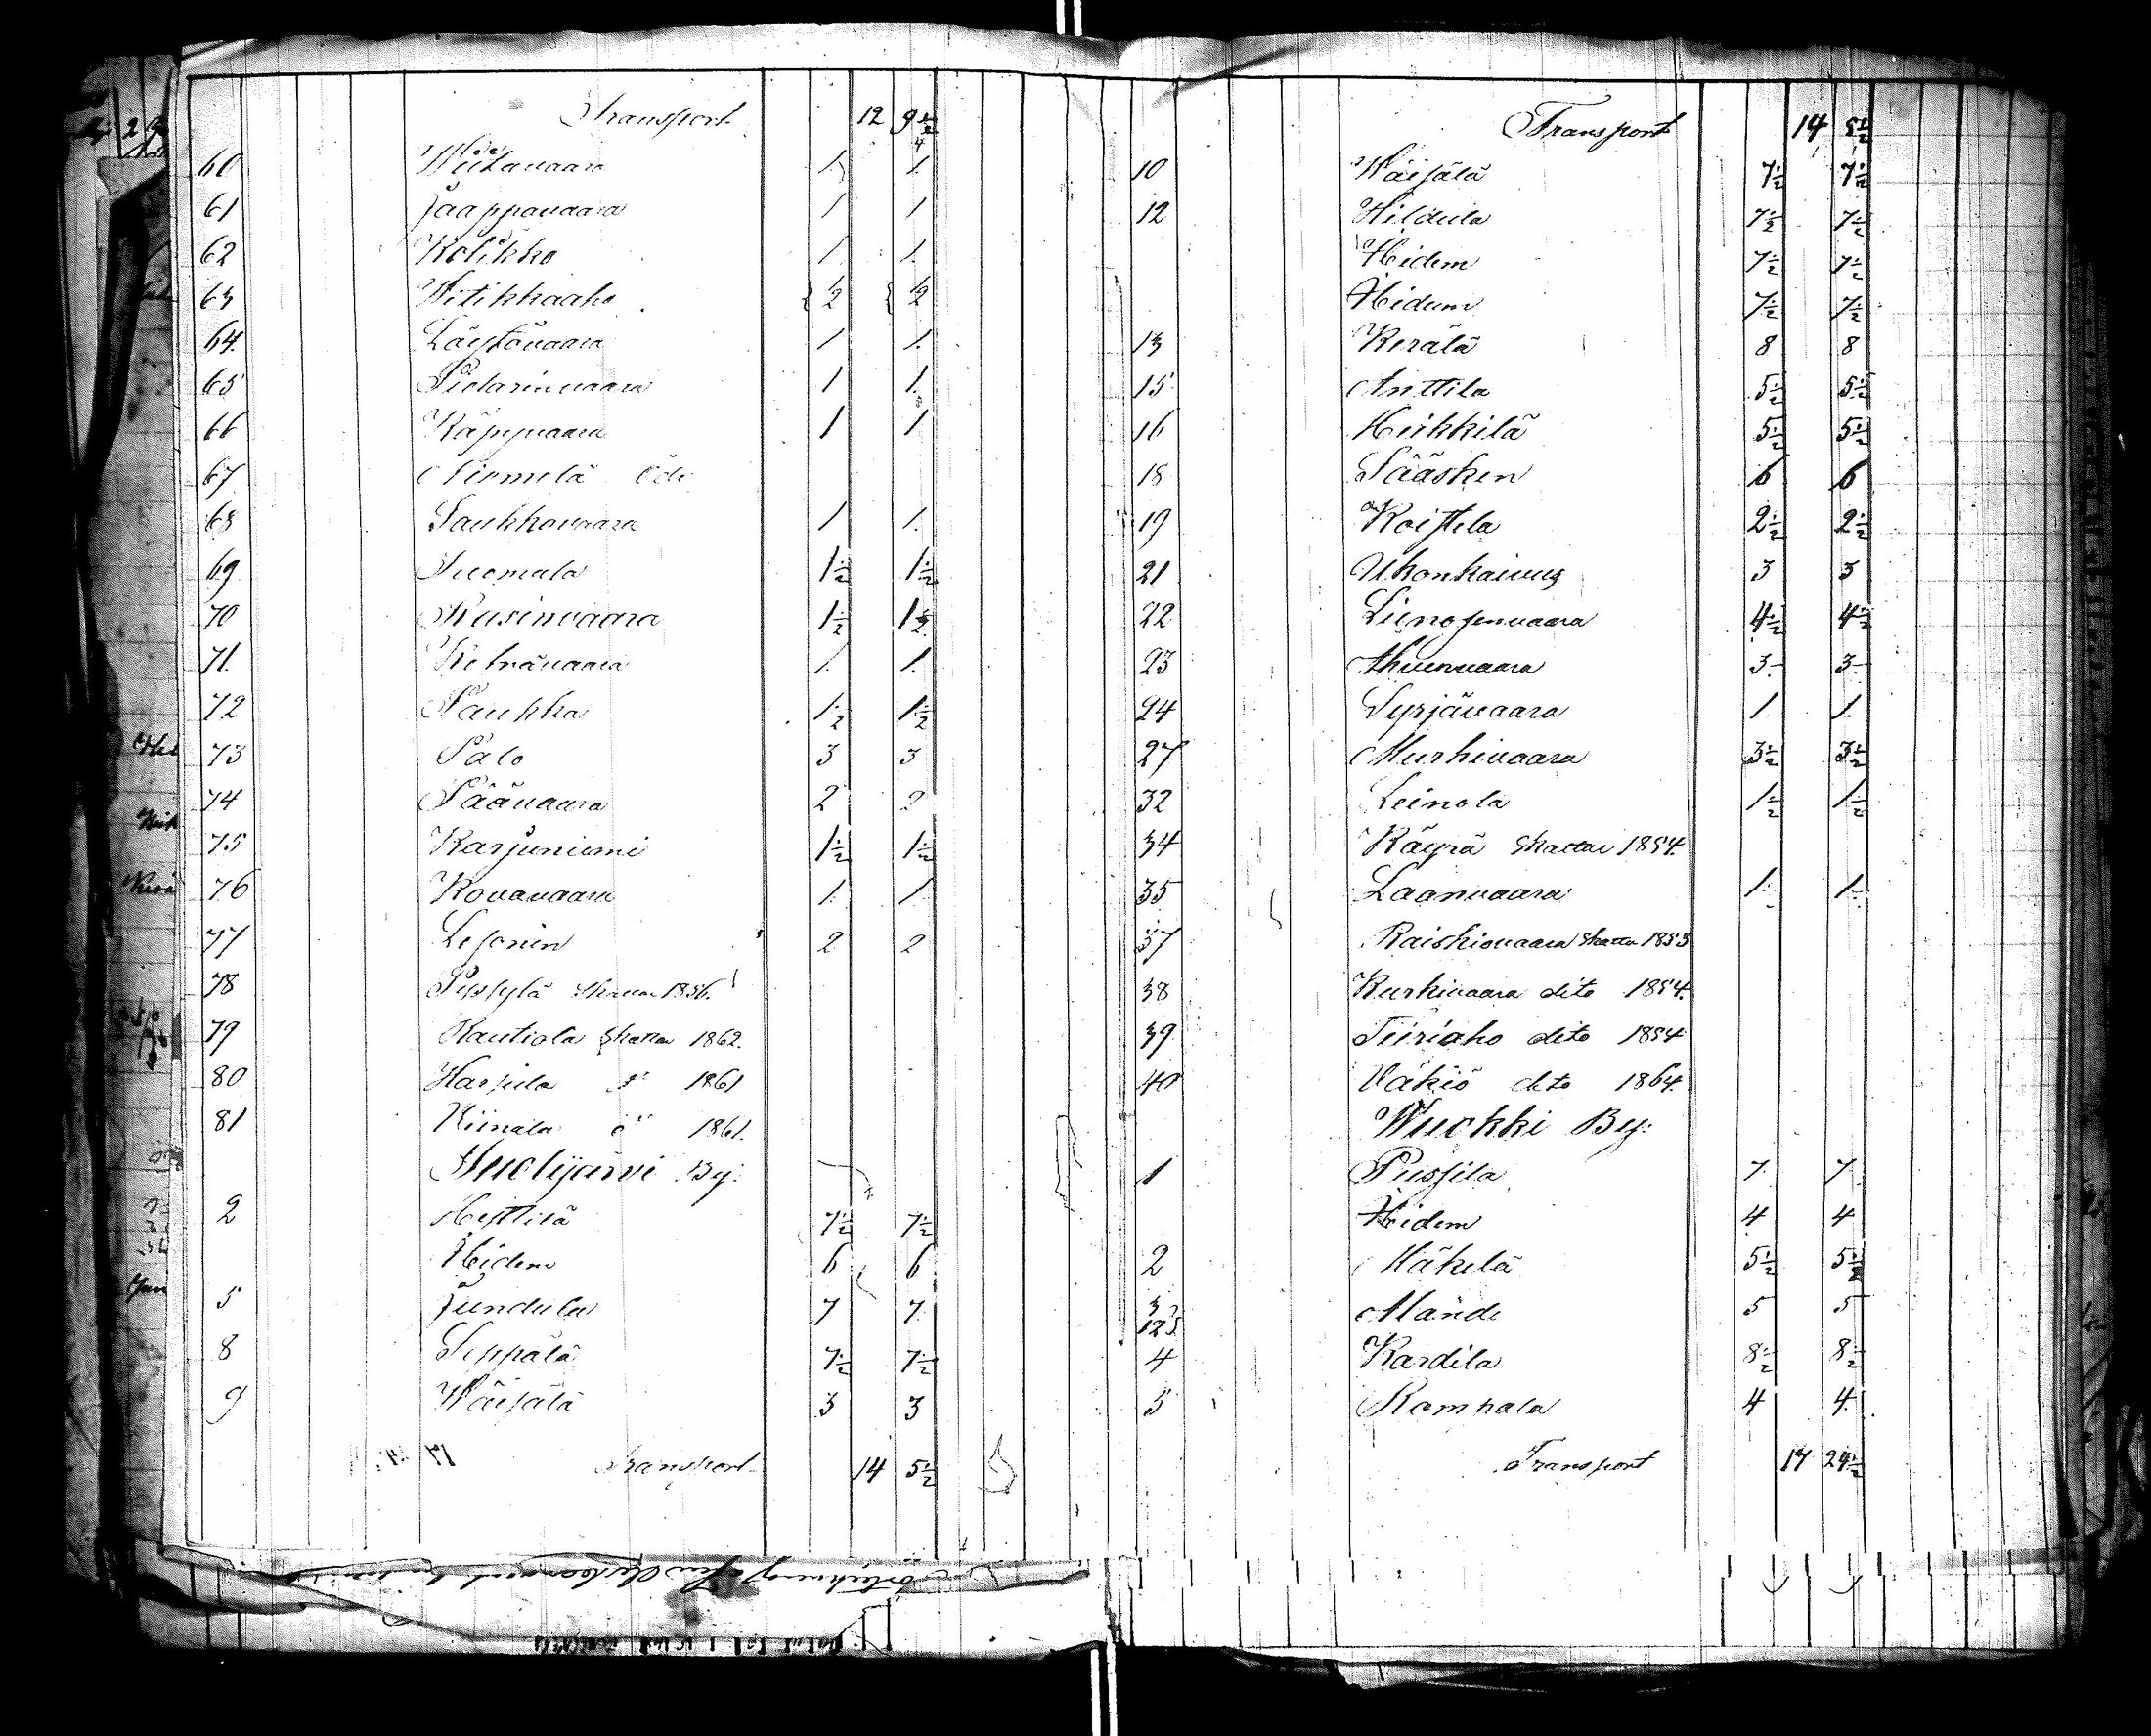 Transport 12 9½
60 Wiitavaara 1 1
61 Jaappavaara 1 1
62 Kolikko 1 1
63 Witikkaaho ½ ½
64 Löytövaara 1 1
65 Pietarinvaara 1 1
66 Käpyvaara 1 1
67 Niemelä Öde
68 Saukkovaara 1 1
69 Suomula 1½ 1½
70 Kusinvaara 1½ 1½
71 Kehrävaara 1 1
72 Paukka 1½ 1½
73 Palo 3 3
74 Päävaara 2 2
75 Karjuniemi 1½ 1½
76 Kovavaara 1 1
77 Lesonen 2 2
78 Pyssylä Skattar 1856.
79 Rautiola Skattar 1862.
80 Harjula d° 1861
81 Kiinala d° 1861.
Suolijärvi By:
2 Heittilä 7½ 7½
Hidem 6 6
5 Jundula 7 7
8 Seppälä 7½ 7½
9 Wäisälä 3 3
Transport 14 5½
Transport 14 5½
10 Wäisälä 7½ 7½
12 Hildula 7½ 7½
Hidem 7½ 7½
Hidem 7½ 7½
13 Kerälä 8 8
15 Anttila 5½ 5½
16 Heikkilä 5½ 5½
18 Sääsken 6 6
19 Koistila 2½ 2½
21 Ukonkaivus 3 3
22 Leinosenvaara 4½ 4½
23 Ahvenvaara 3 3
24 Syrjävaara 1 1
27 Murhivaara 3½ 3½
32 Leinola 1½ 1½
34 Käyrä Skattar 1854.
35 Laanvaara 1 1
37 Raiskiovaara Skattar 1853
38 Kurkivaara dito 1854.
39 Tiiriaho dito 1854
40 Väkiö dito 1864.
Wuokki By:
1 Pussila 7 7
Hidem 4 4
2 Mäkelä 5½ 5½
3 Mande 5 5
12
4 Kardila 8½ 8½
5 Rampala 4 4
Transport 17 24½